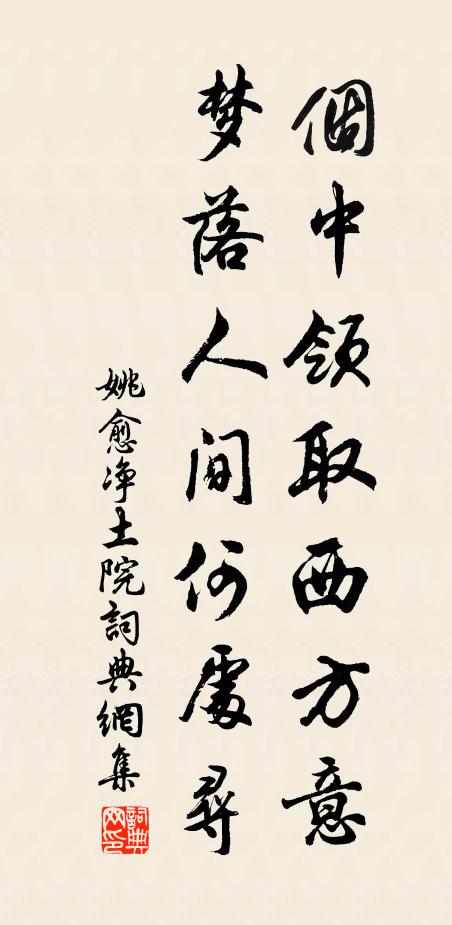 個中領取西方意
梦落人間何處尋
姚愈净土院詞典網集
詞典網印